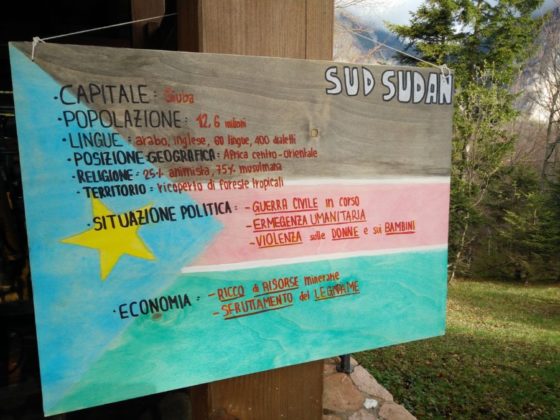 SUD SUDAN
• CAPITALE : Giuba
• POPOLAZIONE : 12,6 milioni
• LINGUE : arabo, inglese, 60 lingue, 400 dialetti
• POSIZIONE GEOGRAFICA : Africa centro-orientale
• RELIGIONE : 25% animista, 75% musulmana
• TERRITORIO : ricoperto di foreste tropicali
• SITUAZIONE POLITICA : - GUERRA CIVILE in corso
- ERMEGENZA UMANITARIA
- VIOLENZA sulle DONNE e sui BAMBINI
• ECONOMIA : - RICCO di RISORSE minerarie
- SFRUTTAMENTO del LEGNAME